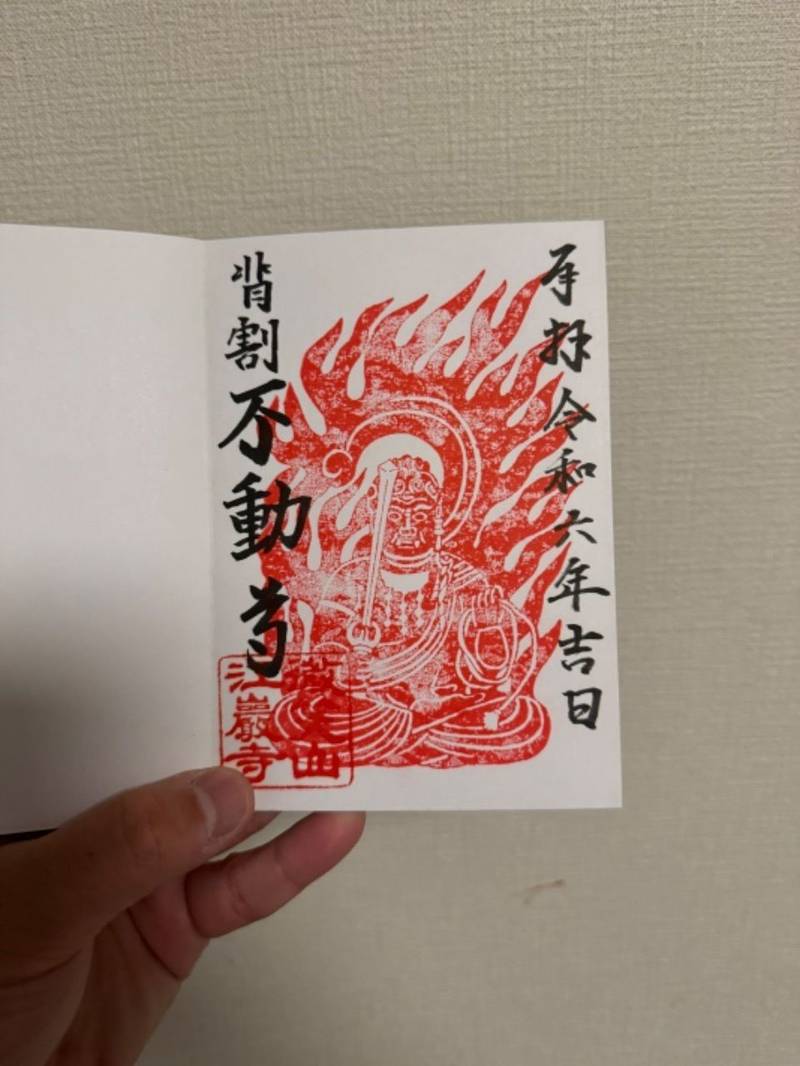 奉拝令和六年吉日
背割不動尊
江巖寺